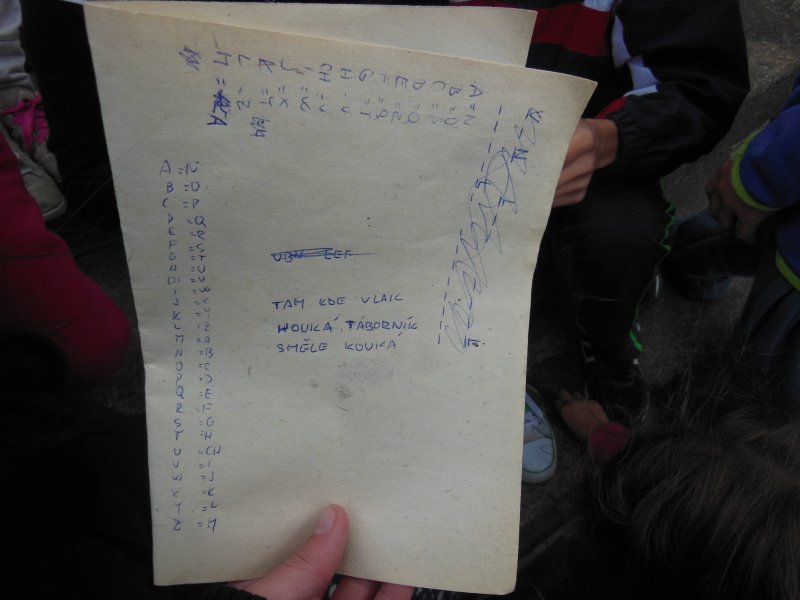 A=N
B=O
C=P
D=Q
E=R
F=S
G=T
H=U
CH=V
I=W
J=X
K=Y
L=Z
M=A
N=B
O=C
P=D
Q=E
R=F
S=G
T=H
U=CH
V=I
W=J
X=K
Y=L
Z=M
TAM KDE VLAK
HOUKÁ, TÁBORNÍK
SMĚLE KOUKÁ
A=N
B=O
J=X
K=Y
L=Z